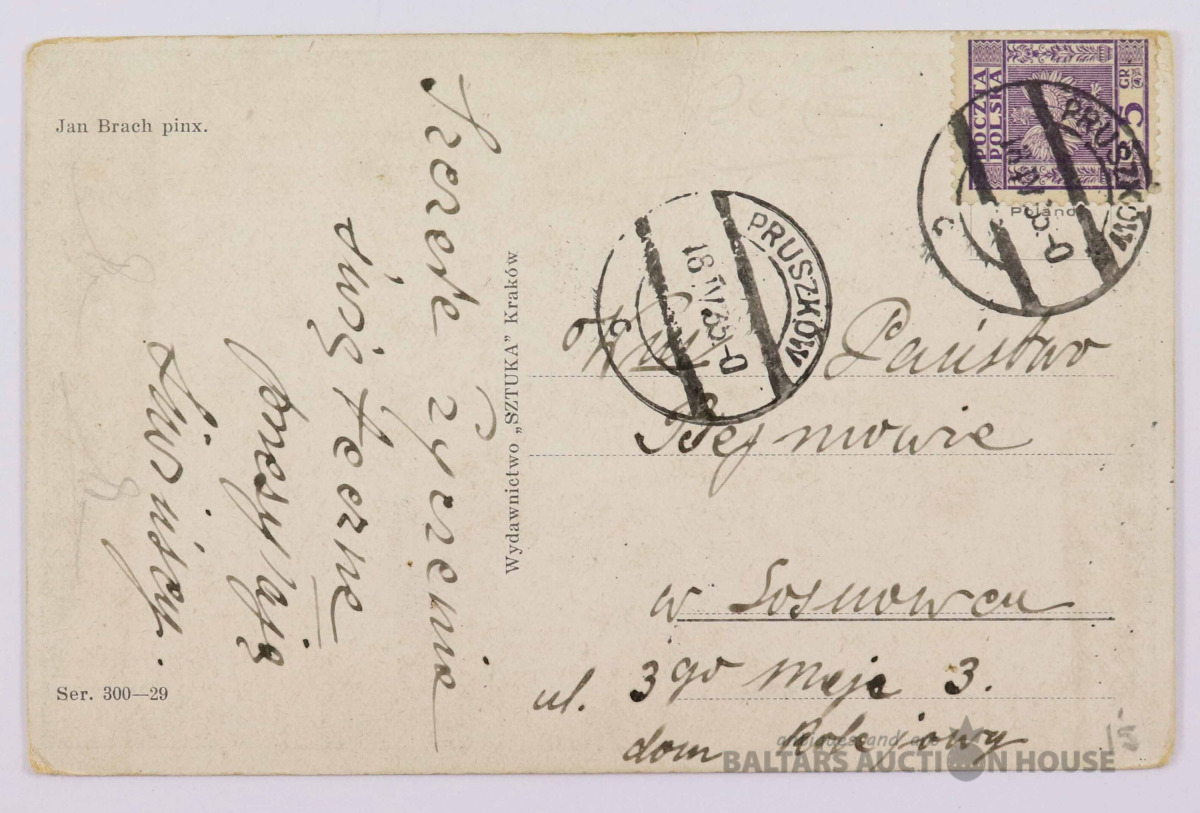 Jan Brach pinx.
Szczere życzenia
świąteczne
przesyłają
Ser. 300—29
Wydawnictwo „SZTUKA" Kraków
POCZTA
POLSKA
5 GR
PRUSZKÓW
Poland
PRUSZKÓW
18 IV 35-0
c
WW Państwo
Bejmowie
w Sosnowcu
ul. 3go Maja 3.
dom Kolejowy
antiques and art
BALTARS AUCTION HOUSE